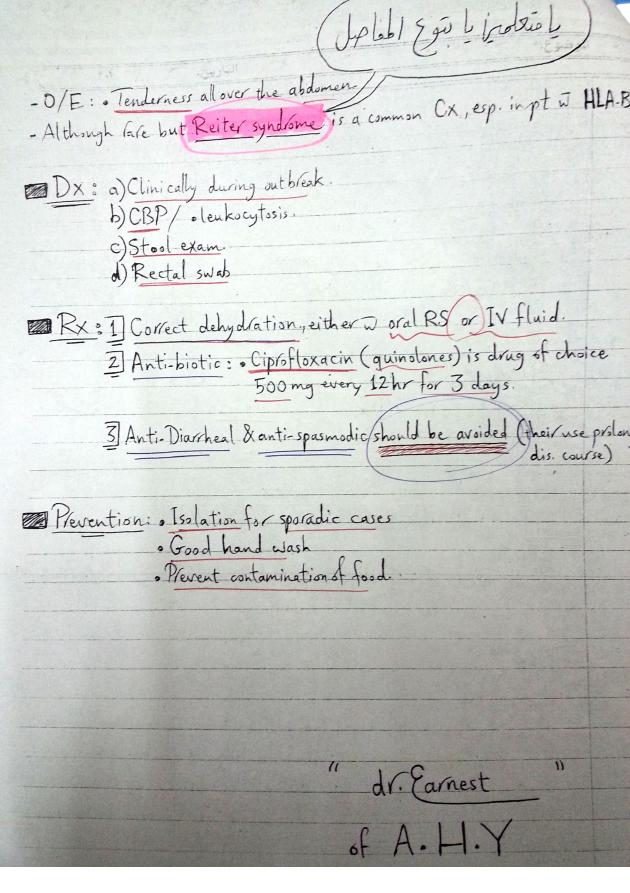 يا متعلمين يا بتوع المفاصل
- O/E: • Tenderness all over the abdomen.
- Although rare but Reiter syndrome is a common Cx, esp. in pt w̄ HLA-B
Dx: a) Clinically during outbreak.
b) CBP / • leukocytosis.
c) Stool exam.
d) Rectal swab
Rx: 1 Correct dehydration, either w̄ oral RS or IV fluid.
2 Anti-biotic: • Ciprofloxacin (quinolones) is drug of choice
500 mg every 12hr for 3 days.
3 Anti-Diarrheal & anti-spasmodic should be avoided (their use prolon
dis. course)
Prevention: • Isolation for sporadic cases
• Good hand wash
• Prevent contamination of food.
" dr. Earnest "
of A.H.Y